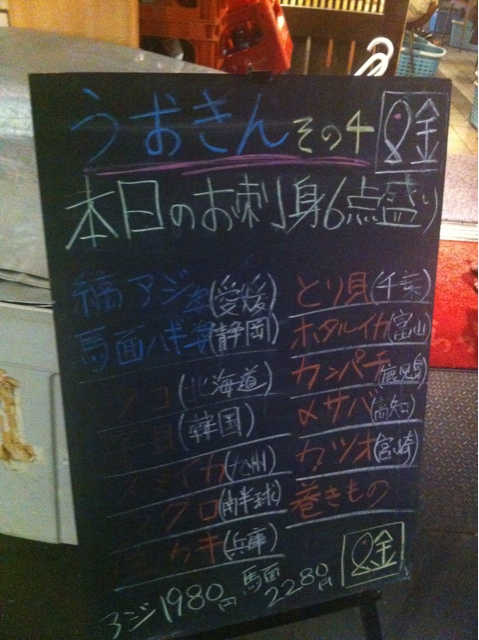 うおきんその4 金
本日のお刺身6点盛り
縞アジ姿(愛媛)
馬面ハギ姿(静岡)
タコ(北海道)
貝(韓国)
スミイカ(九州)
マグロ(南半球)
カキ(兵庫)
とり貝(千葉)
ホタルイカ(富山)
カンパチ(鹿児島)
〆サバ(高知)
カツオ(宮崎)
巻きもの
アジ1980円 馬面2280円 金